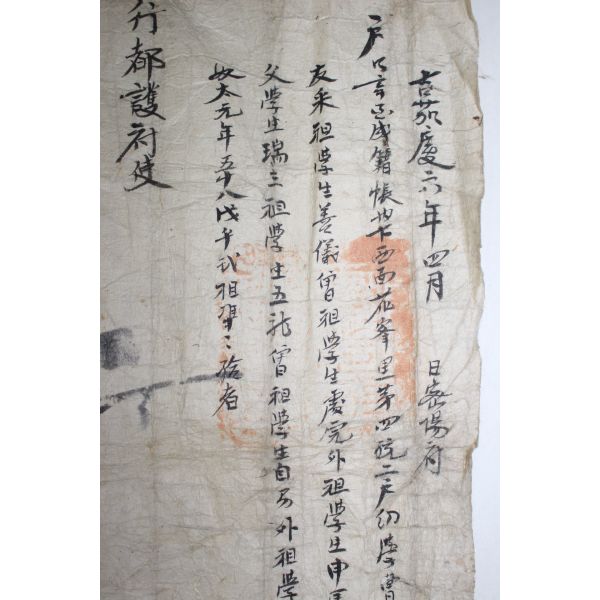 嘉慶六年四月 日密陽府
戶口辛酉成籍帳 西面花峯里第四統二戶幼學曺
友采祖學生善儀曾祖學生處完外祖學生申
父學生瑞三祖學生五龍曾祖學生自 外祖學
奴太元年五十八戊午 祖準 給者
行都護府使